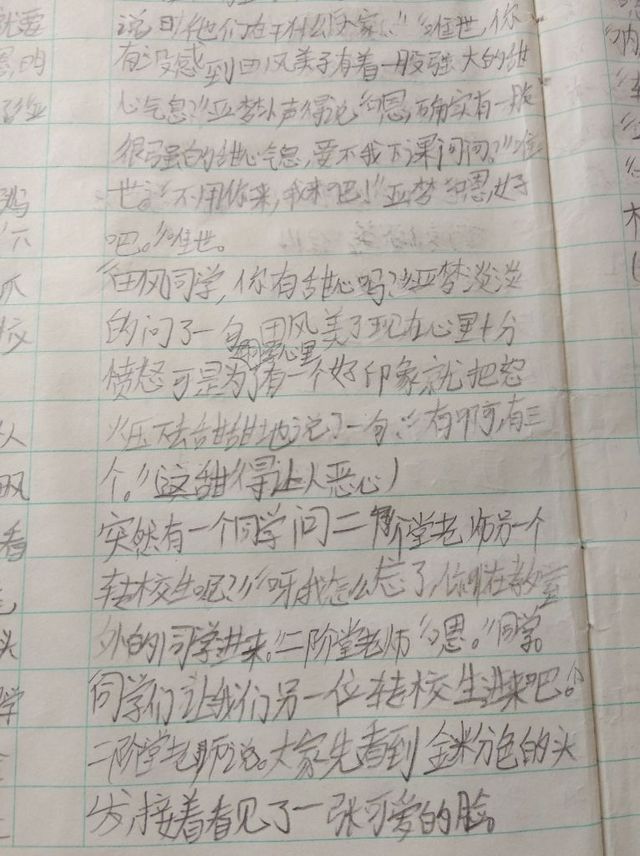 说吗他们在干什么大家。”“唯世，你
有没感到田风美子有着一股强大的甜
心气息？”亚梦小声得说“恩，确实有一股
很强的甜心气息，要不我下课问问。”唯
世。“不用你来，我来吧！”亚梦“恩，好
吧。”唯世。
“田风同学，你有甜心吗？”亚梦淡淡
的问了一句，田风美子现在心里十分
愤怒可是为了有一个好印象就把怒
火压下去甜甜地说了一句：“有啊，有三
个。”（这甜得让人恶心）
突然有一个同学问二阶堂老师另一个
转校生呢？”“呀我怎么忘了，你叫在教室
外的同学进来。”二阶堂老师“恩。”同学。
同学们让我们另一位转校生进来吧。”
二阶堂老师说。大家先看到金粉色的头
发，接着看见了一张可爱的脸。
就要
妈
爪
校
人
风
看
头
学